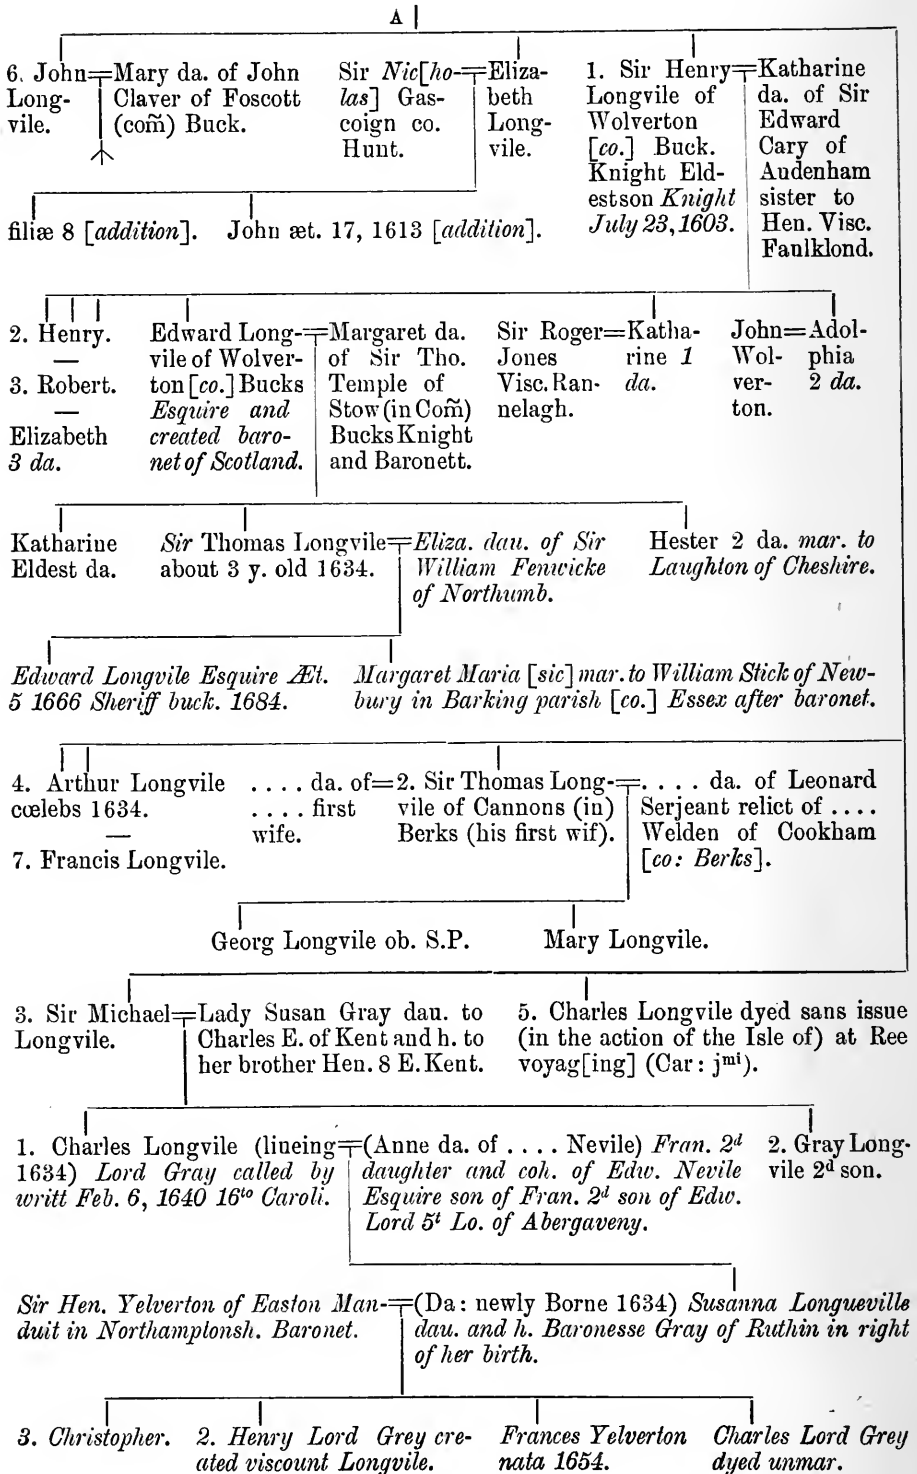 A
6. John
Long-
vile.
Mary da. of John
Claver of Foscott
(com̃) Buck.
Sir Nic[ho-
las] Gas-
coign co.
Hunt.
Eliza-
beth
Long-
vile.
1. Sir Henry
Longvile of
Wolverton
[co.] Buck.
Knight Eld-
estson Knight
July 23, 1603.
Katharine
da. of Sir
Edward
Cary of
Audenham
sister to
Hen. Visc.
Faulklond.
filiæ 8 [addition].
John æt. 17, 1613 [addition].
2. Henry.
—
3. Robert.
—
Elizabeth
3 da.
Edward Long-
vile of Wolver-
ton [co.] Bucks
Esquire and
created baro-
net of Scotland.
Margaret da.
of Sir Tho.
Temple of
Stow (in Com̃)
Bucks Knight
and Baronett.
Sir Roger
Jones
Visc. Ran-
nelagh.
Katha-
rine 1
da.
John
Wol-
ver-
ton.
Adol-
phia
2 da.
Katharine
Eldest da.
Sir Thomas Longvile
about 3 y. old 1634.
Eliza. dau. of Sir
William Fenwicke
of Northumb.
Hester 2 da. mar. to
Laughton of Cheshire.
Edward Longvile Esquire Æt.
5 1666 Sheriff buck. 1684.
Margaret Maria [sic] mar. to William Stick of New-
bury in Barking parish [co.] Essex after baronet.
4. Arthur Longvile
cœlebs 1634.
—
7. Francis Longvile.
.... da. of
.... first
wife.
2. Sir Thomas Long-
vile of Cannons (in)
Berks (his first wif).
.... da. of Leonard
Serjeant relict of ....
Welden of Cookham
[co: Berks].
Georg Longvile ob. S.P.
Mary Longvile.
3. Sir Michael
Longvile.
Lady Susan Gray dau. to
Charles E. of Kent and h. to
her brother Hen. 8 E. Kent.
5. Charles Longvile dyed sans issue
(in the action of the Isle of) at Ree
voyag[ing] (Car: jmi).
1. Charles Longvile (lineing
1634) Lord Gray called by
writt Feb. 6, 1640 16to Caroli.
(Anne da. of .... Nevile) Fran. 2d
daughter and coh. of Edw. Nevile
Esquire son of Fran. 2d son of Edw.
Lord 5t Lo. of Abergaveny.
2. Gray Long-
vile 2d son.
Sir Hen. Yelverton of Easton Man-
duit in Northamptonsh. Baronet.
(Da: newly Borne 1634) Susanna Longueville
dau. and h. Baronesse Gray of Ruthin in right
of her birth.
3. Christopher.
2. Henry Lord Grey cre-
ated viscount Longvile.
Frances Yelverton
nata 1654.
Charles Lord Grey
dyed unmar.